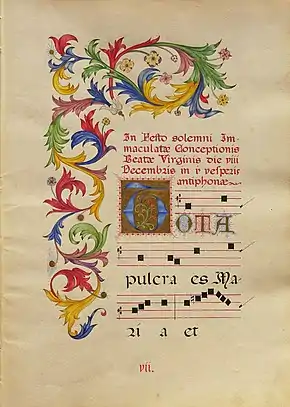 In Festo solemni Im-
maculatæ Conceptionis
Beatæ Virginis die viii
Decembris in v vesperis
antiphonæ
TOTA
pulcra es Ma-
ri a et
vii.